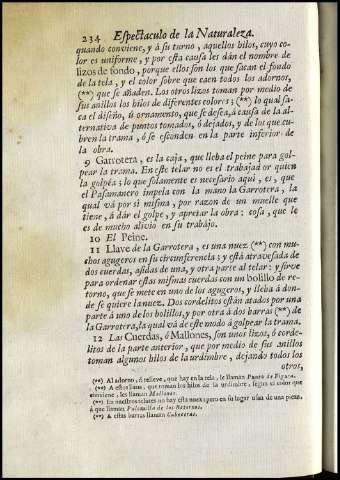 234 Espectaculo de la Naturaleza.
quando conviene, y á su turno, aquellos hilos, cuyo co-
lor es uniforme, y por esta causa les dán el nombre de
lizos de fondo, porque ellos son los que sacan el fondo
de la tela, y el color sobre que caen todos los adornos,
(**) que se añaden. Los otros lizos toman por medio de
sus anillos los hilos de diferentes colores; (**) lo qual sa-
ca el diseño, ù ornamento, que se desea, á causa de la al-
ternativa de puntos tomados, ó dejados, y de los que cu-
bren la trama, ó se esconden en la parte inferior de
la obra.
9 Garrotera, es la caja, que lleba el peine para gol-
pear la trama. En este telar no es el trabajador quien
la golpéa; lo que solamente es necesario aqui, es, que
el Pasamanero impela con la mano la Garrotera, la
qual vá por sì misma, por razon de un muelle que
tiene, á dár el golpe, y apretar la obra: cosa, que le
es de mucho alivio en su trabajo.
10 El Peine.
11 Llave de la Garrotera, es una nuez (**) con mu-
chos agugeros en su circunferencia; y está atravesada de
dos cuerdas, asidas de una, y otra parte al telar: y sirve
para ordenar estas mismas cuerdas con un bolillo de re-
torno, que se mete en uno de los agugeros, y lleba á don-
de se quiere la nuez. Dos cordelitos están atados por una
parte á uno de los bolillos, y por otra á dos barras (**) de
la Garrotera, la qual vá de este modo á golpear la trama.
12 Las Cuerdas, ó Mallones, son unos lizos, ó corde-
litos de la parte anterior, que por medio de sus anillos
toman algunos hilos de la urdimbre, dejando todos los
otros,
(**) Al adorno, ó relieve, que hay en la tela, le llamán Punto de Figura.
(**) A estos lizos, que toman los hilos de la urdimbre, segun el color que
conviene, les llaman Mallones.
(**) En nuestros telares no hay esta nuez; pero en su lugar usan de una pieza,
á que llaman Palomilla de los Retornos.
(**) A estas barras llaman Cabeceras.